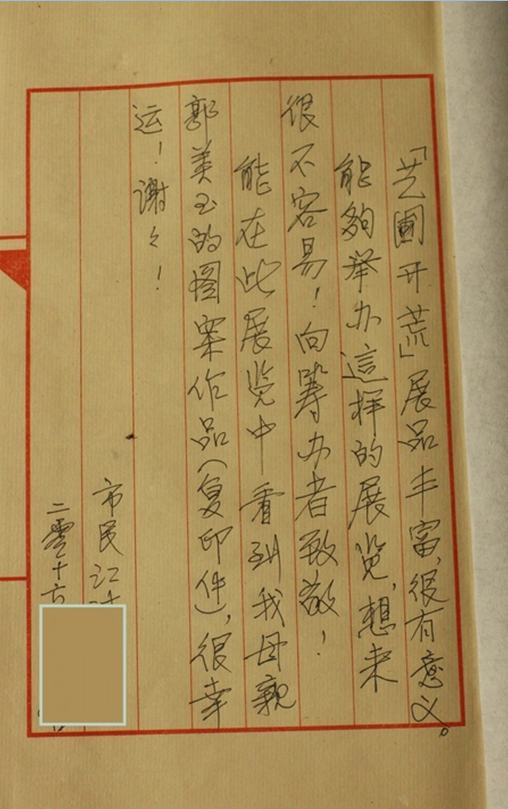 「艺圃开荒」展品丰富,很有意义。
能夠举办這样的展览,想来
很不容易!向筹办者致敬!
能在此展览中看到我母親
郭美玉的图案作品(复印件),很幸
运!谢々!
市民江
二零十六